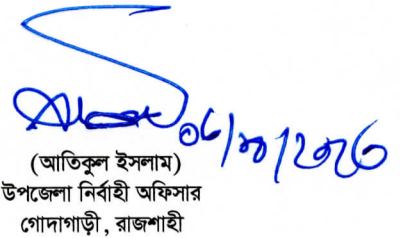 (আতিকুল ইসলাম)
উপজেলা নির্বাহী অফিসার
গোদাগাড়ী, রাজশাহী